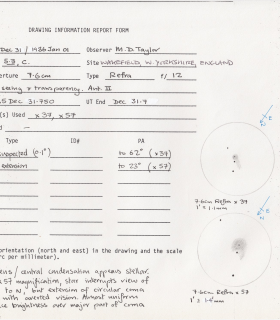 DRAWING INFORMATION REPORT FORM
Dec 31 / 1986 Jan 01 Observer M.D. Taylor
Site WAKEFIELD, W. YORKSHIRE, ENGLAND
erture 7.6cm Type Refra f/ 12
seeing & transparency. Ant. II
5 Dec 31.750 UT End Dec 31.7
(s) Used x37, x57
d -
Type ID# PA
suspected (0.1°) to 62° (x37)
extension to 23° (x57)
7.6cm Refra x 37
1' =
orientation (north and east) in the drawing and the scale
rc per millimeter).
central condensation appears stellar.
57 magnification, star interrupts view of
to N, but extension of circular coma
with averted vision. Almost uniform
brightness over major part of coma
7.6cm Refra x 57
1' =